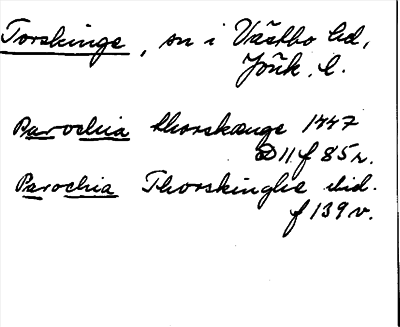 Torskinge, sn i Västbo hd,
Jönk. l.
Parochia thorskænge 1447
D 11 f 85 r.
Parochia Thorskinghe ibid.
f 139 v.